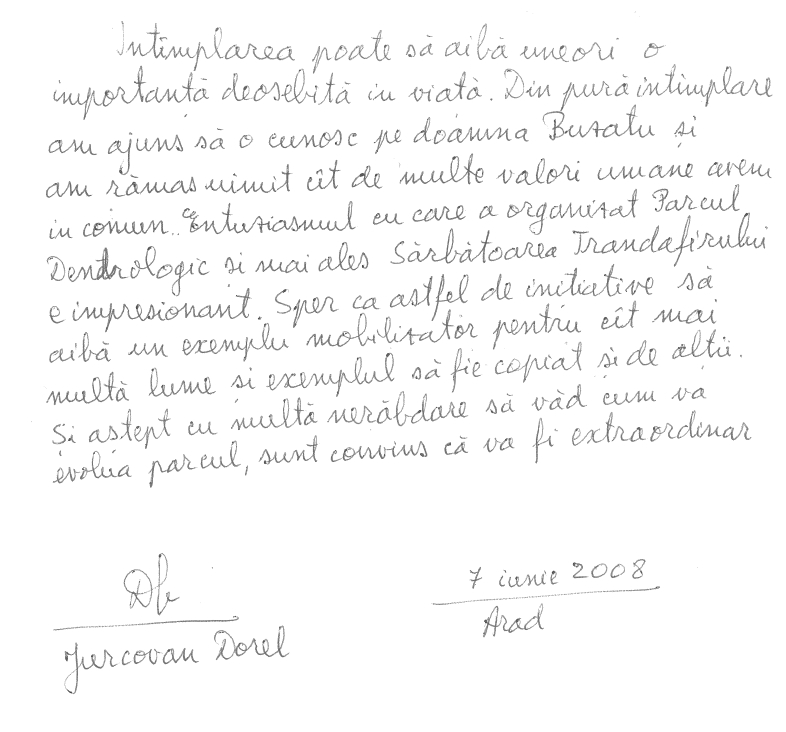 Intimplarea poate să aibă uneori o
importantă deosebită in viată. Din pură intimplare
am ajuns să o cunosc pe doamna Buzatu și
am rămas uimit cît de multe valori umane avem
in comun. Entuziasmul cu care a organizat Parcul
Dendrologic si mai ales Sărbătoarea Trandafirului
e impresionant. Sper ca astfel de initiative să
aibă un exemplu mobilizator pentru cît mai
multă lume si exemplul să fie copiat si de altii.
Si astept cu multă nerăbdare să văd cum va
evolua parcul, sunt convins că va fi extraordinar
7 iunie 2008
Arad
Jurcovan Dorel